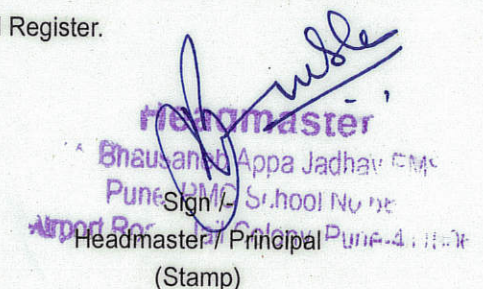 Register.
Headmaster
Bhausaheb Appa Jadhav
Pune PMC School No
Sign /-
Airport Colony Pune-4
Headmaster / Principal
(Stamp)